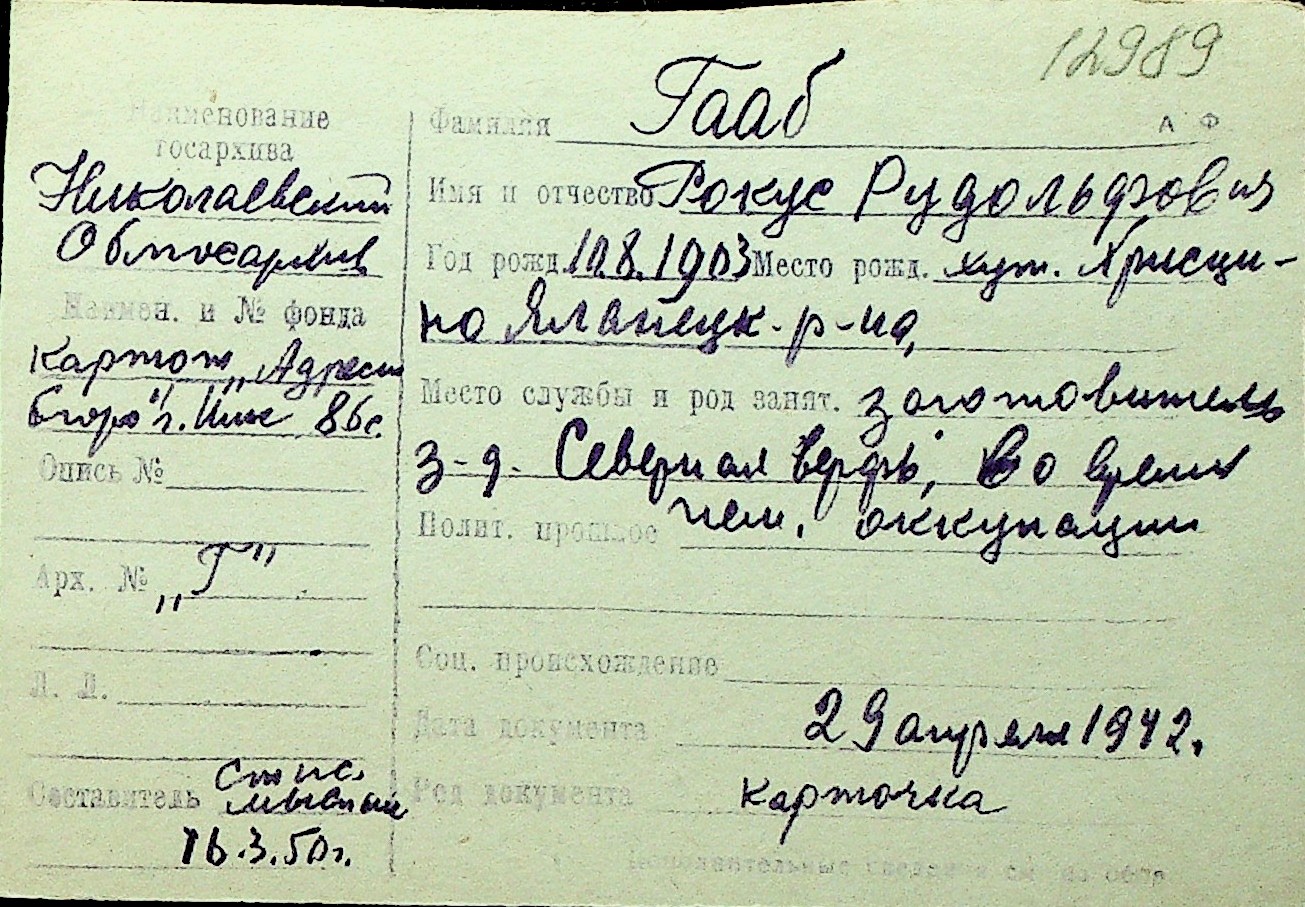 12989
Наименование
госархива
Николаевский
Облгосархив
Наимен. и № фонда
Картот. „Адресн
бюро" г. Ник 86с.
Опись №
Арх. № „Г"
Л. Л.
Составитель
16.3.50г.
Фамилия Гааб
А Ф
Имя и отчество Рокус Рудольфович
Год рожд. 10.8.1903 Место рожд. хут. Хрисци-
но р-на,
Место службы и род занят. заготовитель
з-д. Северная верфь, во время
Полит. прошлое нем. оккупации
Соц. происхождение
Дата документа 29 апреля 1942.
Род документа карточка
Дополнительные сведения см. на обор